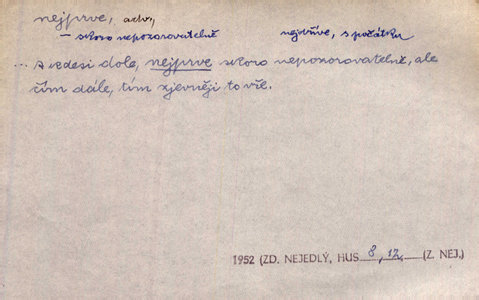 nejprve, adv.,
– skoro nepozorovatelně nejdříve, s počátku
... a kdesi dole, nejprve skoro nepozorovatelně, ale
čím dále, tím zjevněji to vře.
1952 (ZD. NEJEDLÝ, HUS 8, 12. (Z. NEJ.)